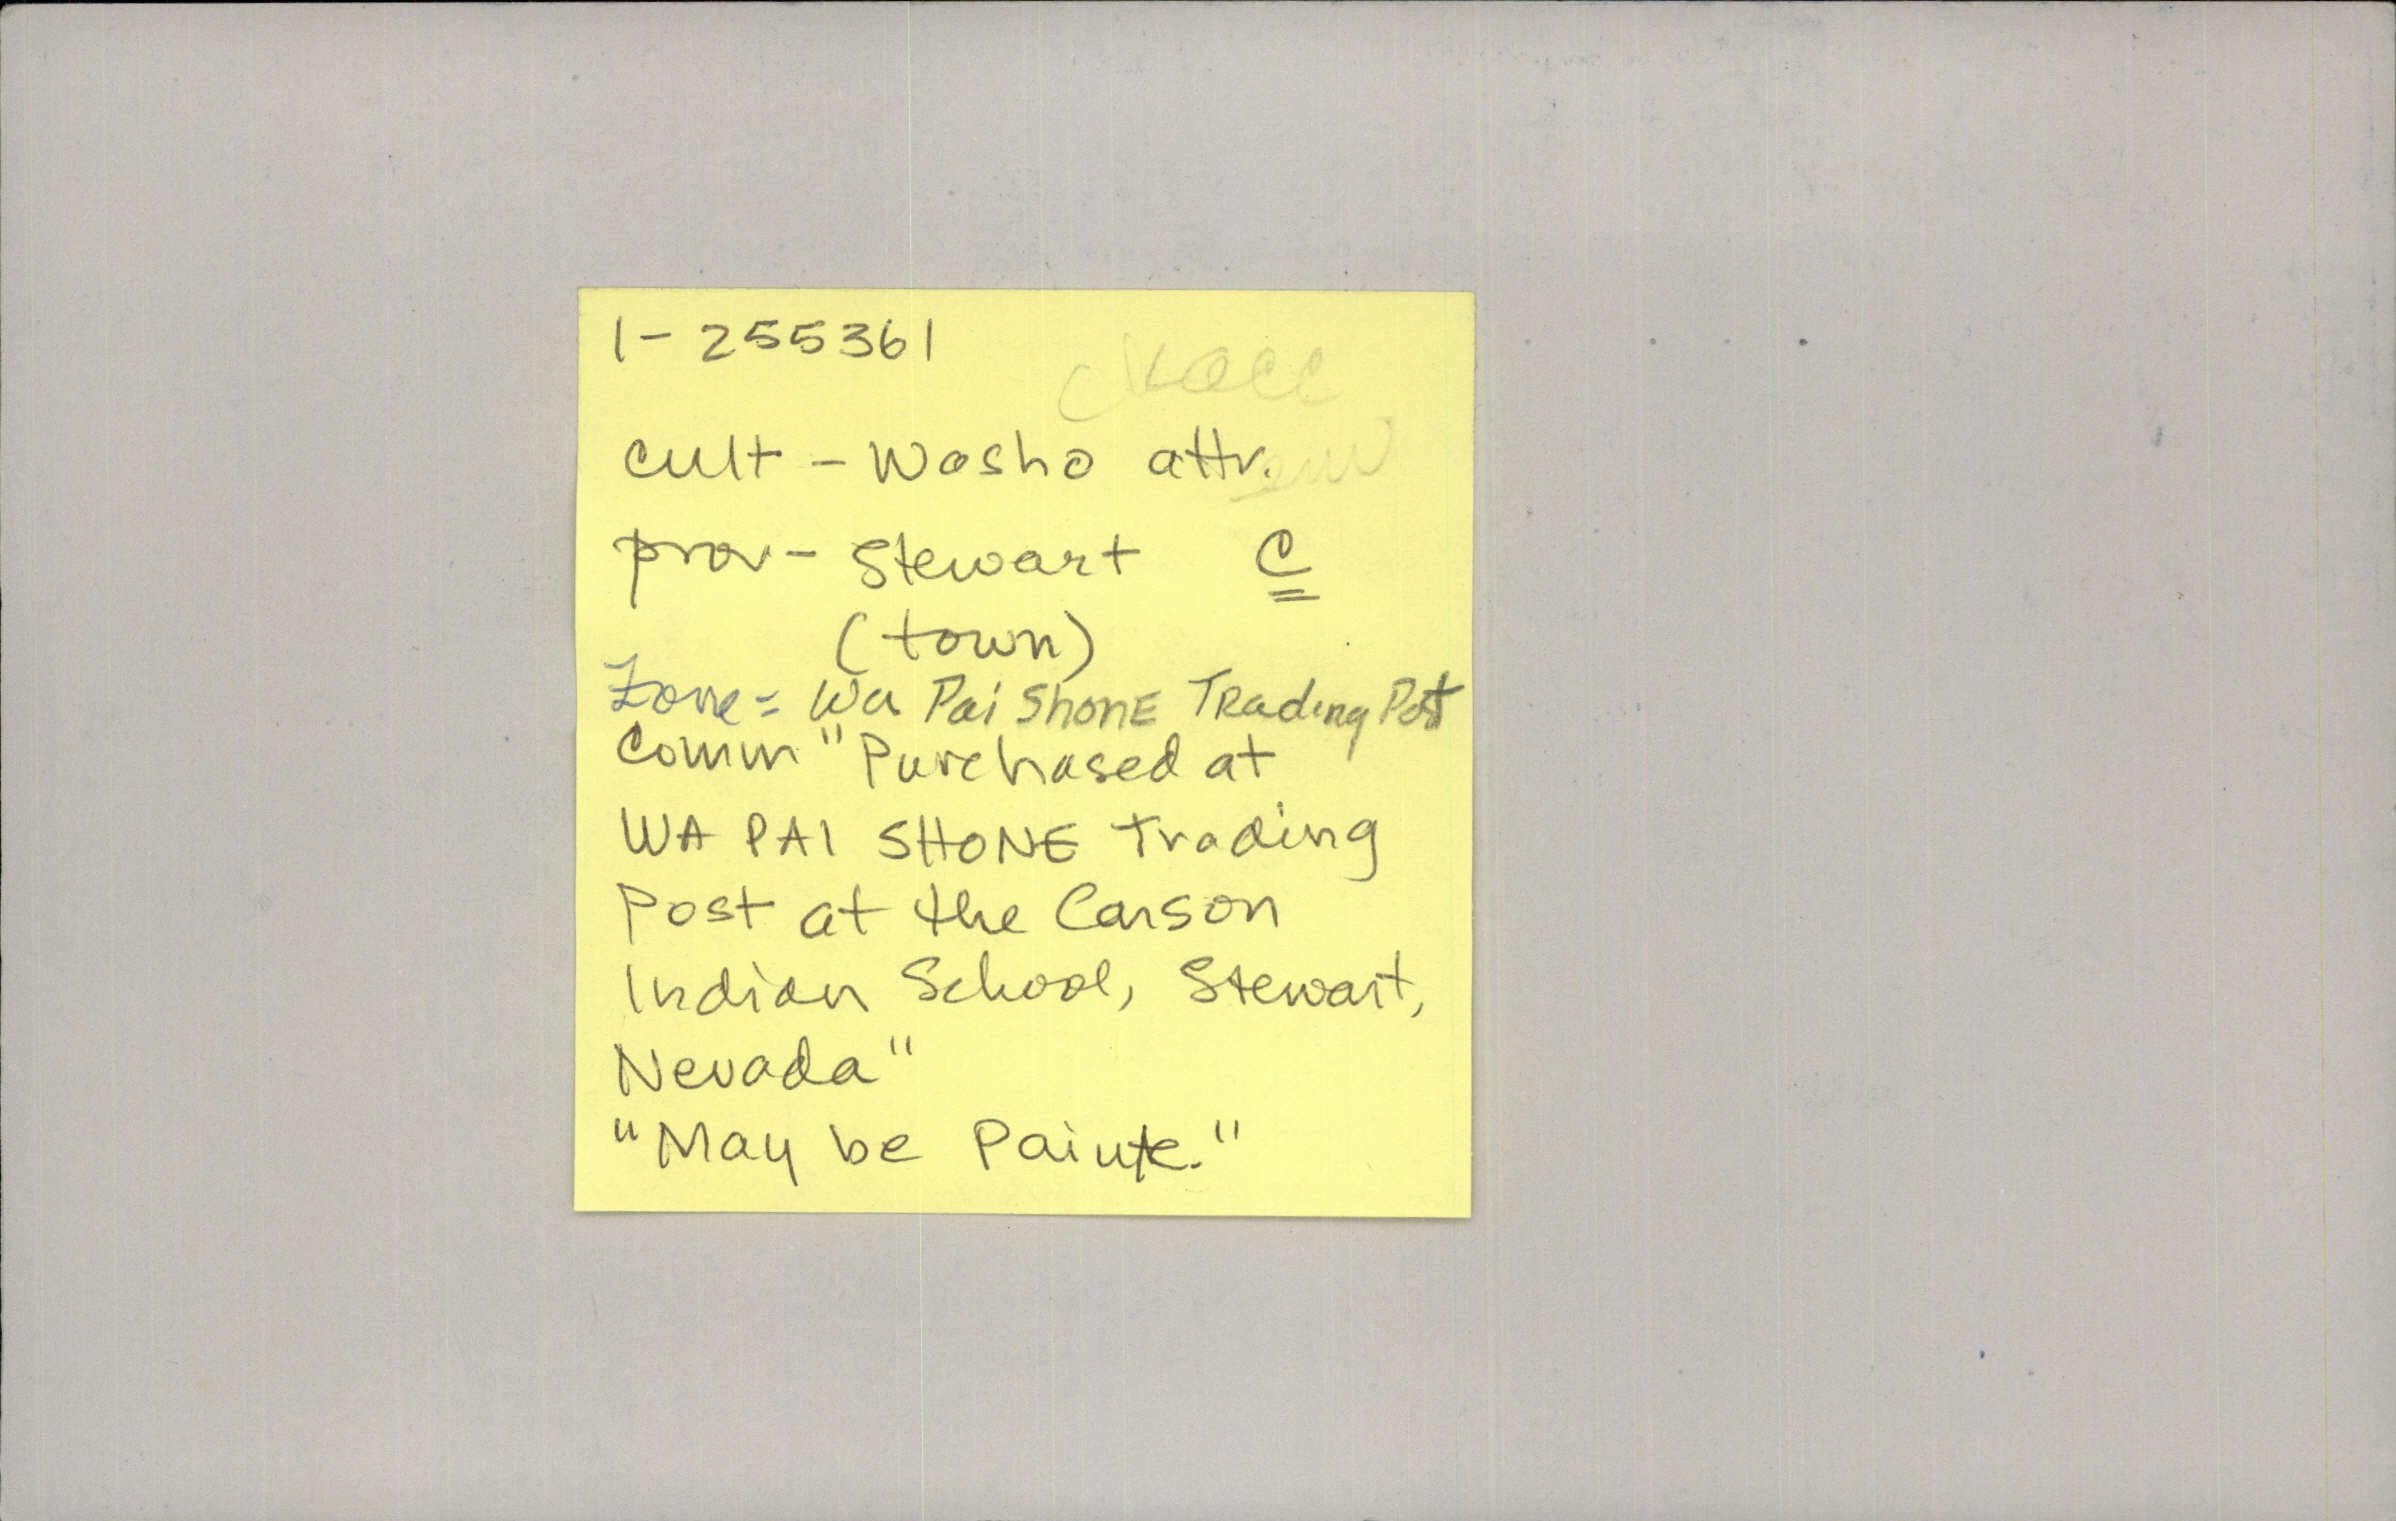 1-255361
cult - Washo attr.
prov - Stewart C
(town)
Zone = Wa Pai ShonE TRading Post
Comm "Purchased at
WA PAI SHONE Trading
Post at the Carson
Indian School, Stewart,
Nevada"
"May be Paiute."